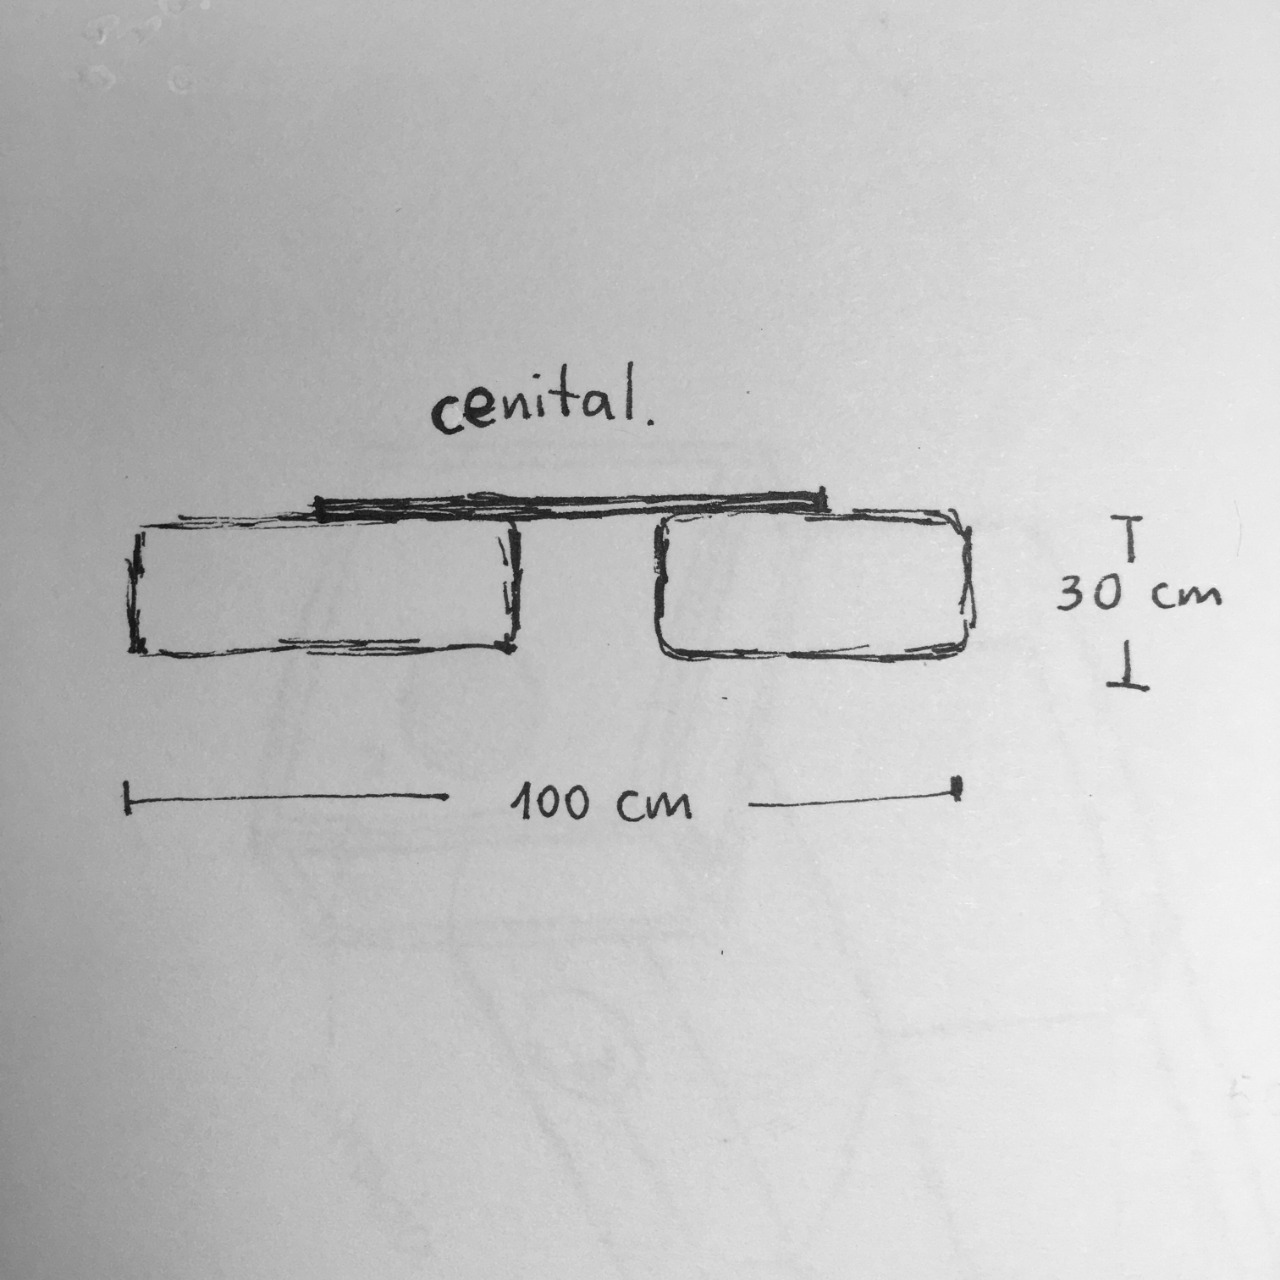 cenital.
30 cm
100 cm